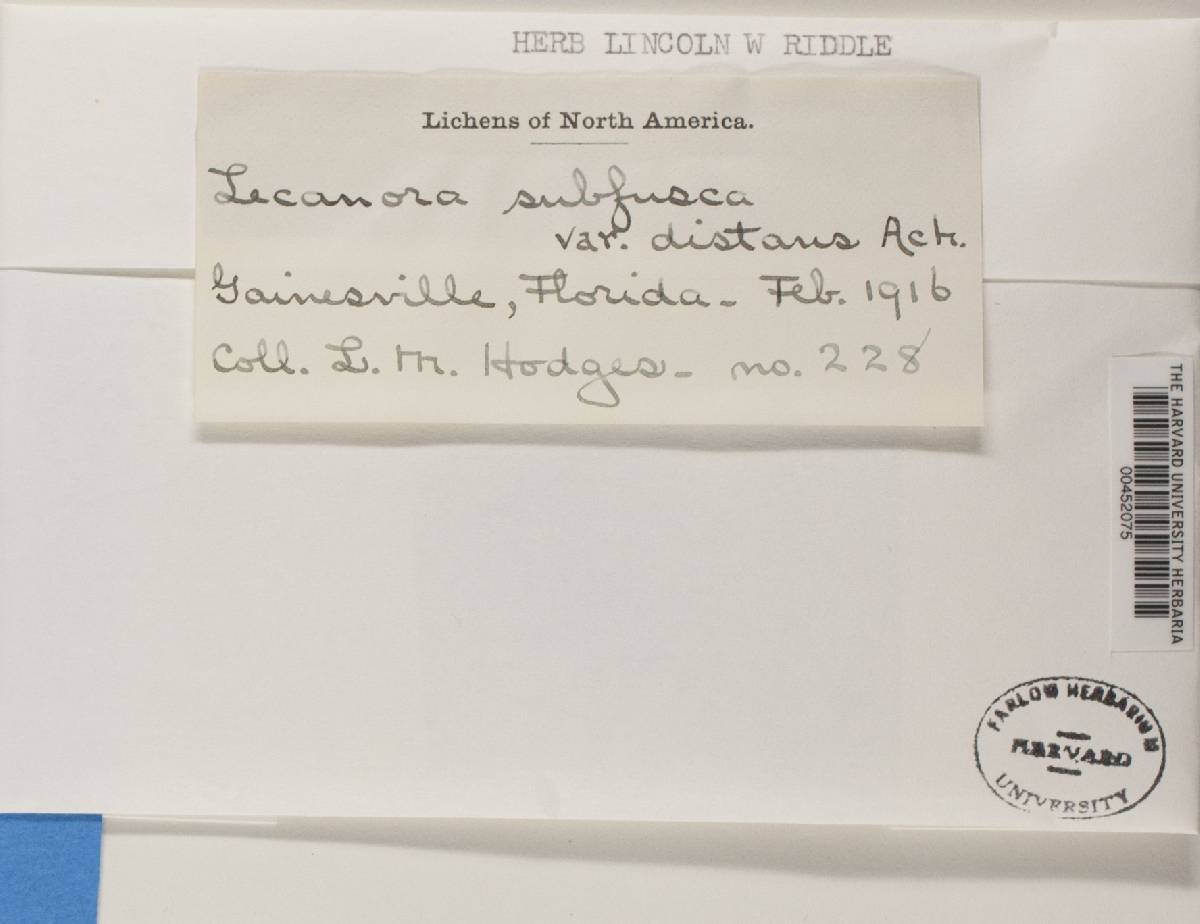 HERB LINCOLN W RIDDLE
Lichens of North America.
Lecanora subfusca
var. distans Ach.
Gainesville, Florida - Feb. 1916
Coll. L. M. Hodges - no. 228
THE HARVARD UNIVERSITY HERBARIA
00452075
FARLOW HERBARIUM
HARVARD
UNIVERSITY